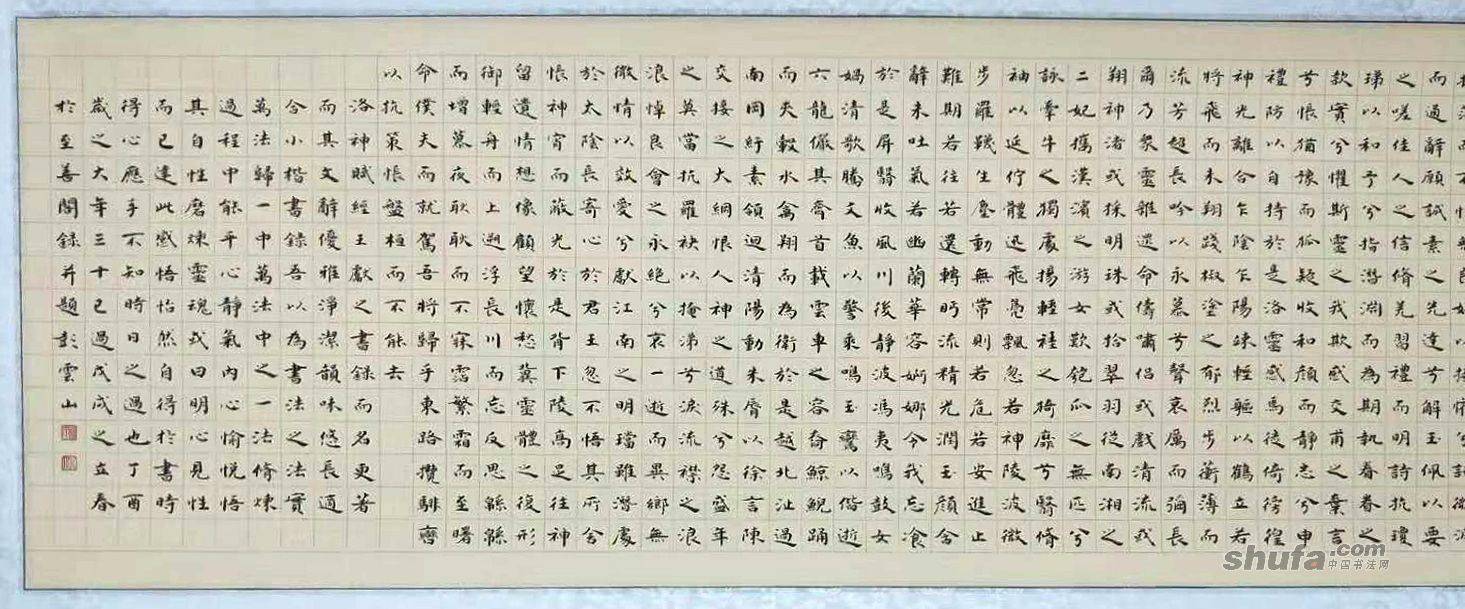 而通辭願誠素之先達兮解玉佩以要
之嗟佳人之信脩羌習禮而明詩抗瓊
珶以和予兮指潛淵而為期執眷眷之
款實兮懼斯靈之我欺感交甫之棄言
兮悵猶豫而狐疑收和顏而靜志兮申
禮防以自持於是洛靈感焉徙倚徬徨
神光離合乍陰乍陽竦輕軀以鶴立若
將飛而未翔踐椒塗之郁烈步蘅薄而
流芳超長吟以永慕兮聲哀厲而彌長
爾乃眾靈雜遝命儔嘯侶或戲清流或
翔神渚或採明珠或拾翠羽從南湘之
二妃攜漢濱之游女歎匏瓜之無匹兮
詠牽牛之獨處揚輕袿之猗靡兮翳脩
袖以延佇體迅飛鳧飄忽若神陵波微
步羅韈生塵動無常則若危若安進止
難期若往若還轉眄流精光潤玉顏含
辭未吐氣若幽蘭華容婀娜令我忘飡
於是屏翳收風川後靜波馮夷鳴鼓女
媧清歌騰文魚以警乘鳴玉鸞以偕逝
六龍儼其齊首載雲車之容裔鯨鯢踊
而夾轂水禽翔而為衛於是越北沚過
南岡紆素領迴清陽動朱脣以徐言陳
交接之大綱恨人神之道殊兮怨盛年
之莫當抗羅袂以掩涕兮淚流襟之浪
浪悼良會之永絕兮哀一逝而異鄉無
微情以效愛兮獻江南之明璫雖潛處
於太陰長寄心於君王忽不悟其所舍
悵神宵而蔽光於是背下陵高足往神
留遺情想像顧望懷愁冀靈體之復形
御輕舟而上遡浮長川而忘反思緜緜
而增慕夜耿耿而不寐霑繁霜而至曙
命僕夫而就駕吾將歸乎東路攬騑轡
以抗策悵盤桓而不能去
洛神賦經王獻之書錄而名更著
而其文辭優雅淨潔韻味悠長適
合小楷書錄吾以為書法之法實
萬法歸一中萬法中之一法脩煉
過程中能平心靜氣內心愉悅悟
其自性磨煉靈魂或曰明心見性
而已達此感悟怡然自得於書時
得心應手不知時日之過也丁酉
歲之大年三十已過戊戌之立春
於至善閣錄并題彭雲山
shufa.com
中国书法网